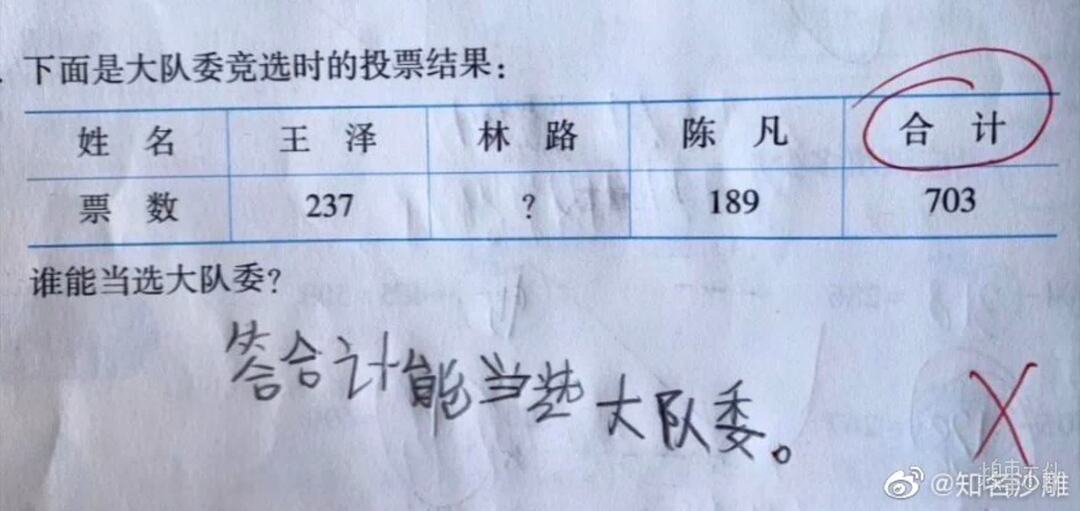 下面是大队委竞选时的投票结果：
姓 名 王 泽 林 路 陈 凡 合 计
票 数 237 ? 189 703
谁能当选大队委？
答合计能当选大队委。
@知名沙雕